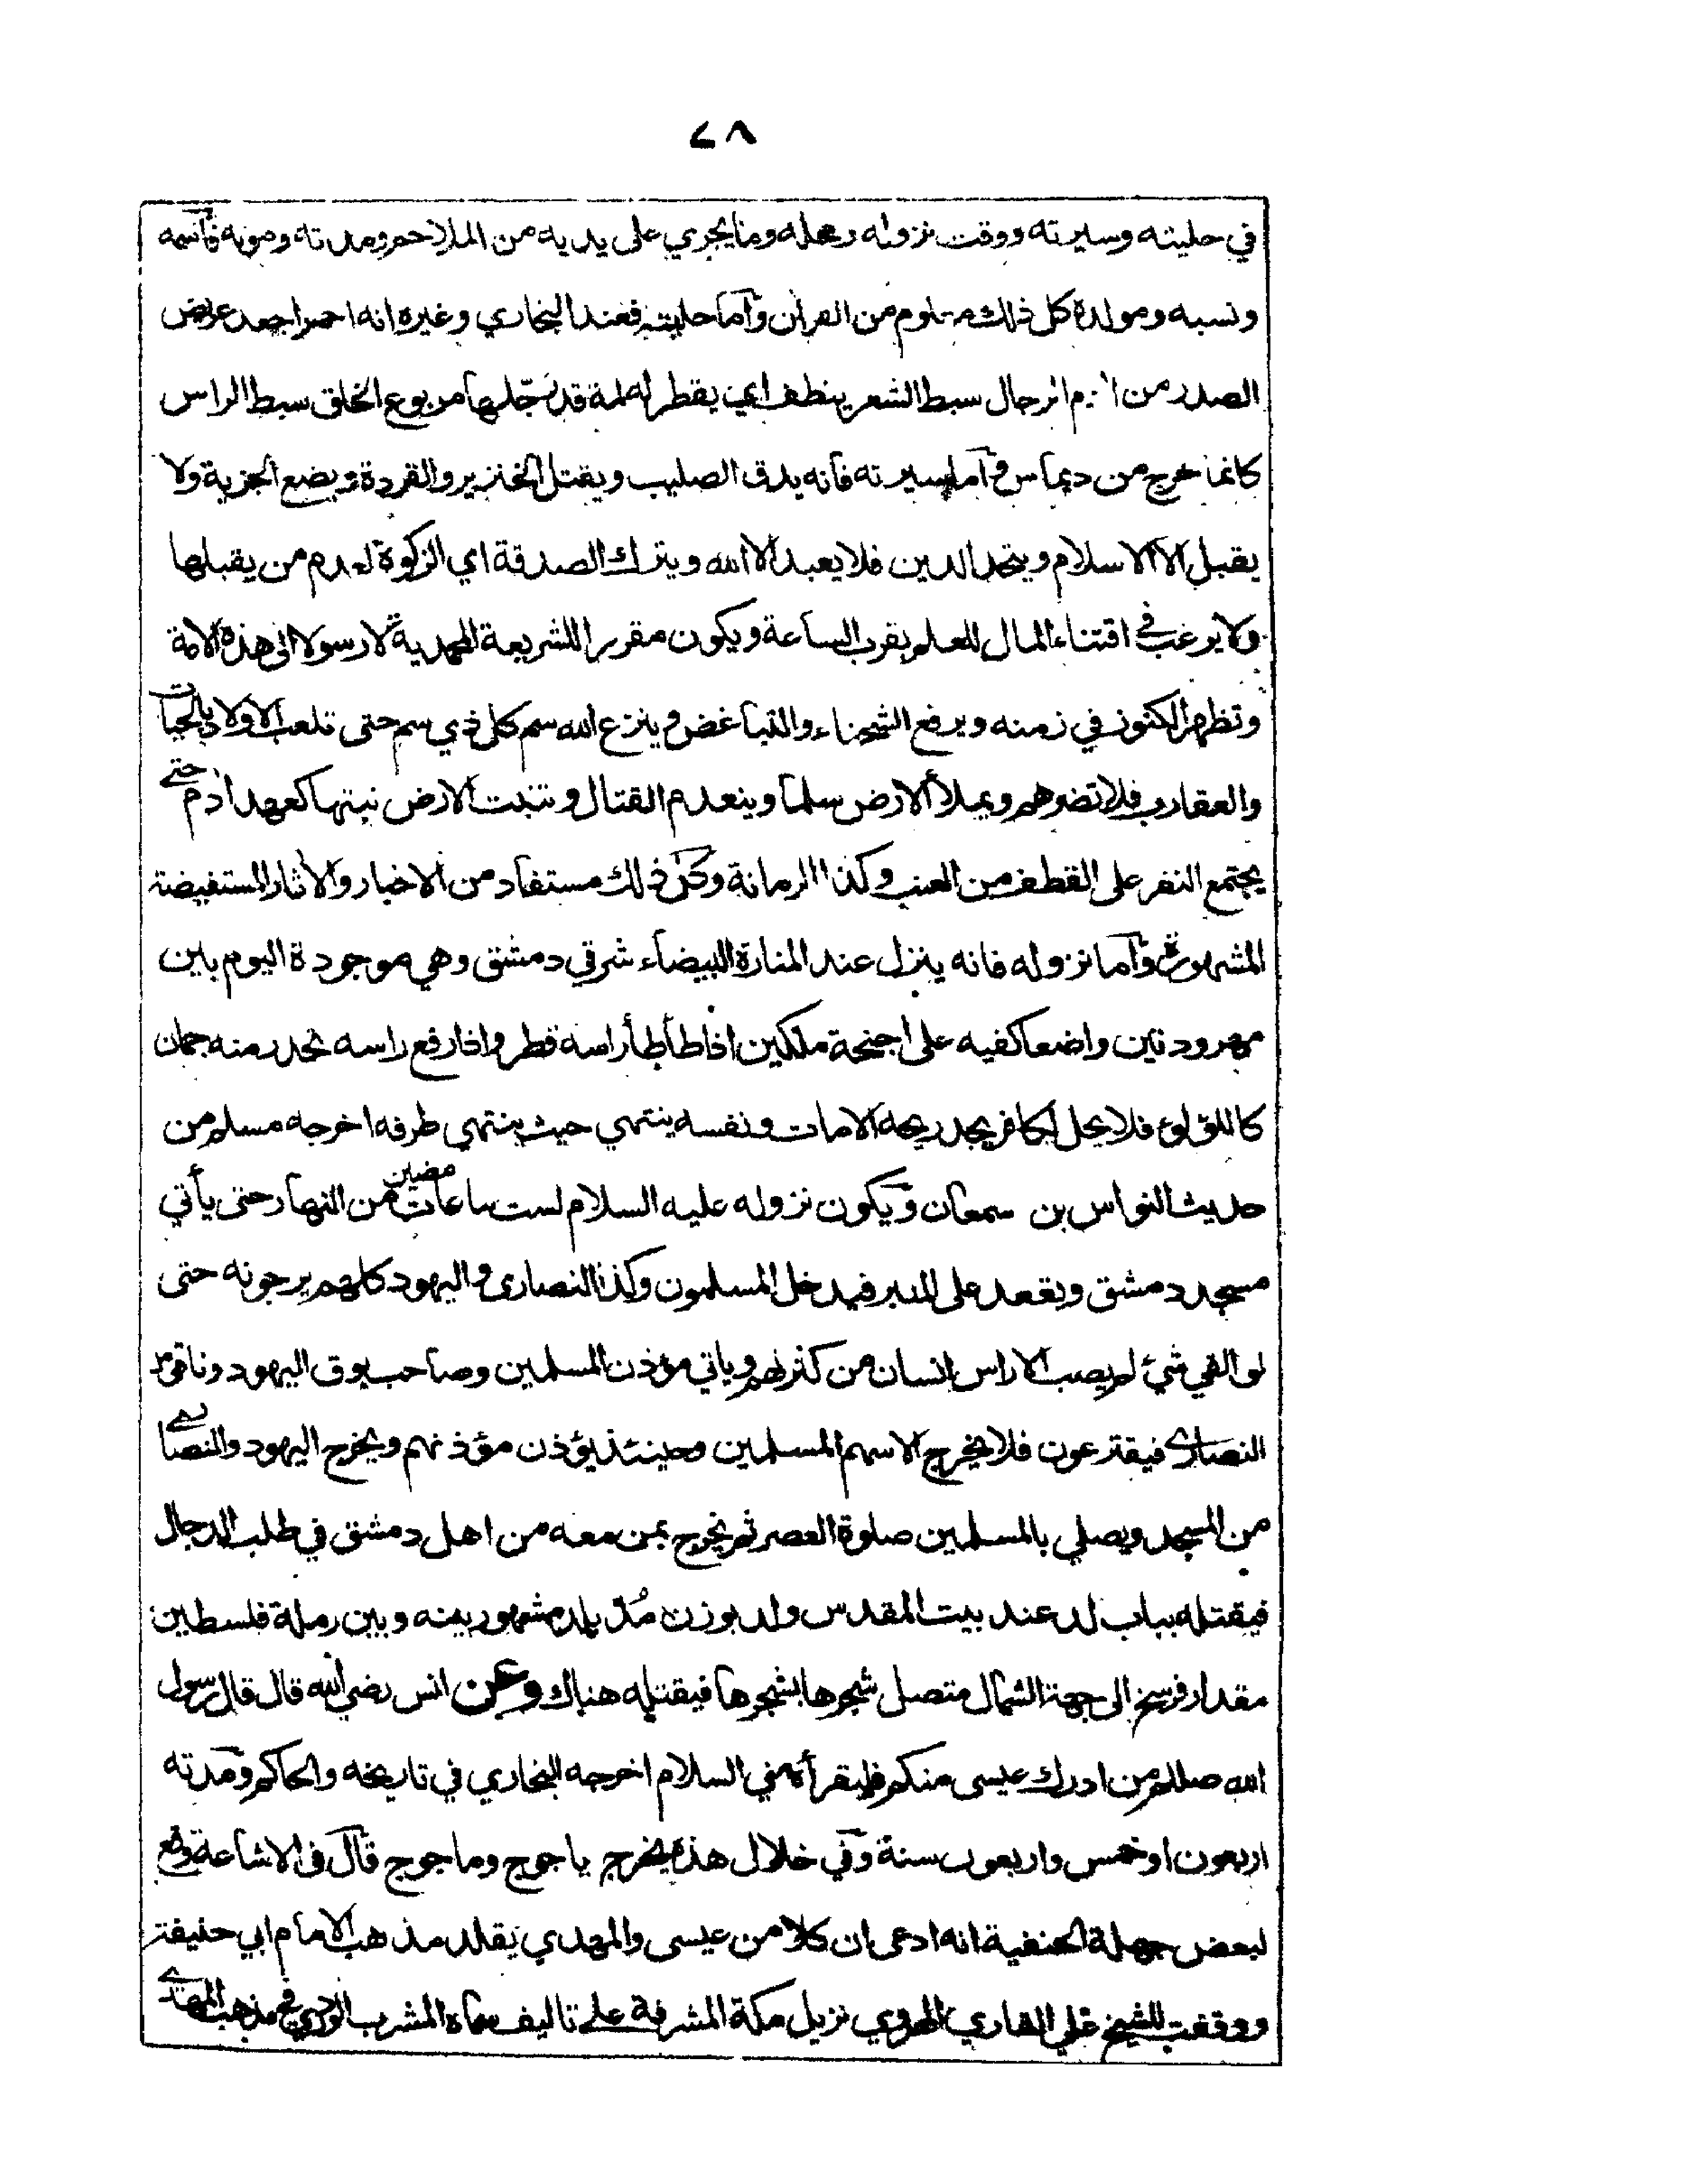 ٧٨
في حليته وسيرته ووقت نزوله ومحله وما يجري على يديه من الملاحم ومدته وموته فاسمه
ونسبه ومولده كل ذلك معلوم من القرآن وأما حليته فعند البخاري وغيره انه احمر جعد عريض
الصدر من ادم الرجال سبط الشعر ينطف اي يقطر له لمة قد رجلها مربوع الخلق سبط الراس
كانما خرج من ديماس وأما سيرته فانه يدق الصليب ويقتل الخنزير والقردة ويضع الجزية ولا
يقبل الا الاسلام ويتحد الدين فلا يعبد الا الله ويترك الصدقة اي الزكوة لعدم من يقبلها
ولا يرغب في اقتناء المال للعلم بقرب الساعة ويكون مقررا للشريعة المحمدية لا رسولا الى هذه الامة
وتظهر الكنوز في زمنه ويرفع الشحناء والتباغض وينزع الله سم كل ذي سم حتى تلعب الاولاد بالحيات
والعقارب فلا تضرهم ويملأ الارض سلما وينعدم القتال وتنبت الارض نبتها كعهد ادم حتى
يجتمع النفر على القطف من العنب وكذا الرمانة وكل ذلك مستفاد من الاخبار والاثار المستفيضة
المشهورة وأما نزوله فانه ينزل عند المنارة البيضاء شرقي دمشق وهي موجودة اليوم بين
مهرودتين واضعا كفيه على اجنحة ملكين اذا طأطأ راسه قطر واذا رفع راسه تحدر منه جمان
كاللؤلؤ فلا يحل لكافر يجد ريحه الا مات ونفسه ينتهي حيث ينتهي طرفه اخرجه مسلم من
حديث النواس بن سمعان ويكون نزوله عليه السلام لست ساعات مضين من النهار حتى يأتي
مسجد دمشق ويقعد على المنبر فيدخل المسلمون وكذا النصارى واليهود كلهم يرجونه حتى
لو القي شئ لم يصب الا راس انسان من كثرتهم وياتي مؤذن المسلمين وصاحب بوق اليهود وناقوس
النصارى فيقترعون فلا يخرج الا سهم المسلمين وحينئذ يؤذن مؤذنهم ويخرج اليهود والنصارى
من المسجد ويصلي بالمسلمين صلوة العصر ثم يخرج بمن معه من اهل دمشق في طلب الدجال
فيقتله بباب لد عند بيت المقدس ولد بوزن مُد بلد مشهور بينه وبين رملة فلسطين
مقدار فرسخ الى جهة الشمال متصل شجرها بشجرها فيقتله هناك وعن انس رضي الله قال قال رسول
الله صللم من ادرك عيسى منكم فليقرأه مني السلام اخرجه البخاري في تاريخه والحاكم ومدته
اربعون او خمس واربعون سنة وفي خلال هذه يخرج ياجوج وماجوج قال في الاشاعة وقع
لبعض جهلة الحنفية انه ادعى ان كلا من عيسى والمهدي يقلد مذهب الامام ابي حنيفة
ووقفت للشيخ علي القاري الهروي نزيل مكة المشرفة على تاليف سماه المشرب الوردي في مذهب المهدي